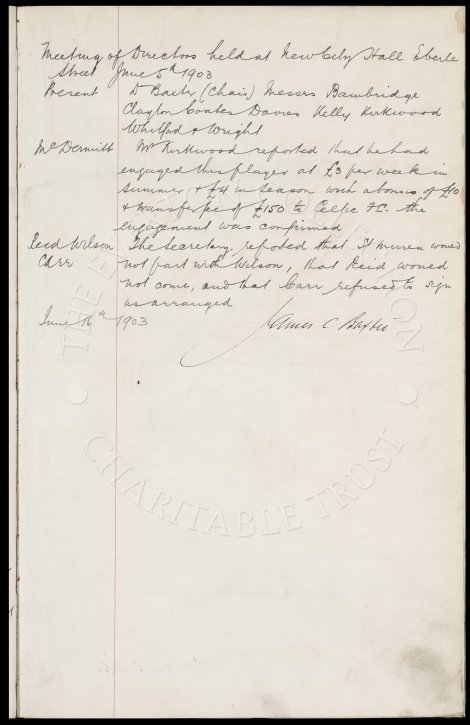 Meeting of Directors held at New City Hall Eberle
Street June 5th 1903
Present Dr Baxter (Chair) Messrs Bainbridge
Clayton Coates Davies Kelly Kirkwood
Whitford & Wright
McDermitt Mr Kirkwood reported that he had
engaged this player at £3 per week in
Summer & £4 in Season with a bonus of £10
& transfer fee of £150 to Celtic F.C. the
engagement was confirmed
Reid Wilson The Secretary reported that St Mirren would
Carr not part with Wilson, that Reid would
not come, and that Carr refused to sign
as arranged
June 16th 1903 James C Baxter
THE EVERTON COLLECTION
CHARITABLE TRUST